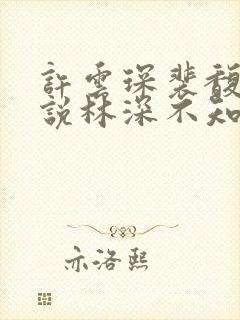 許雲琛裴馥
說林深不知
亦洛熙